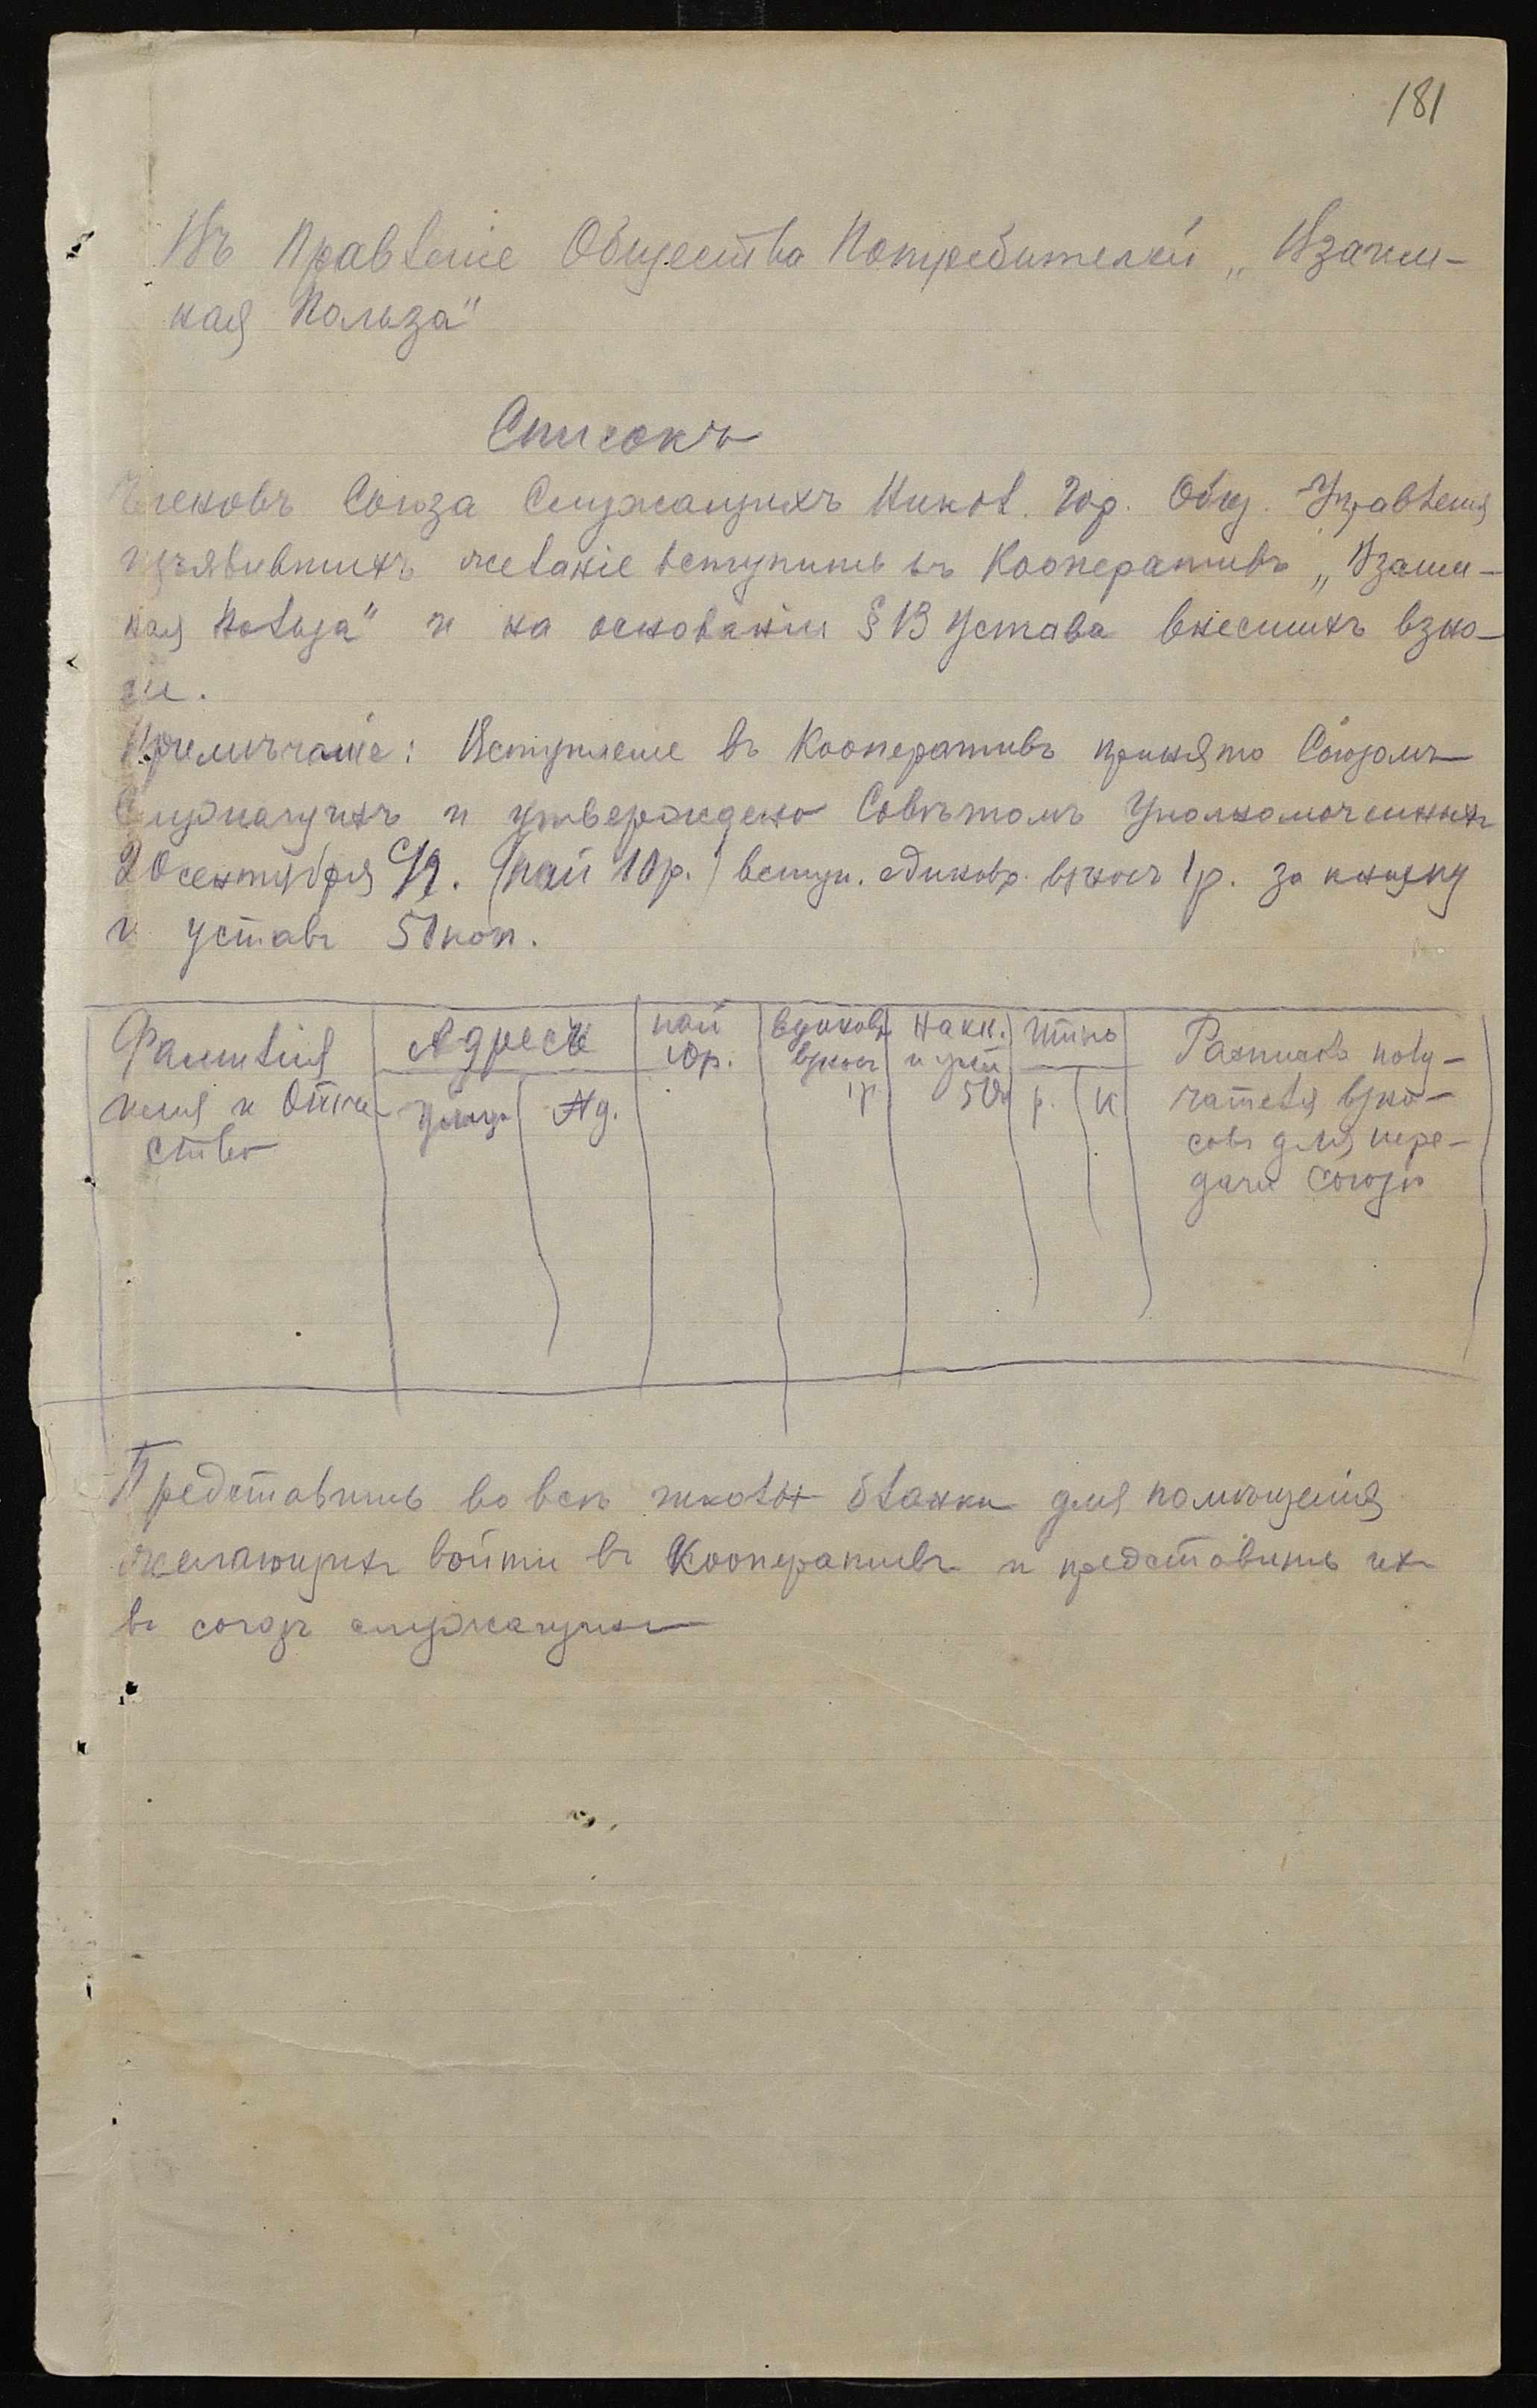 181
Въ Правленіе Общества Потребителей „Взаим-
ная Польза"
Списокъ
Членовъ Союза Служащихъ Никол. Гор. Общ. Управленія
изъявившихъ желаніе вступить въ Кооперативъ „Взаим-
ная Польза" и на основаніи § 13 Устава внесшихъ взно-
сы.
Примѣчаніе: Вступленіе въ Кооперативъ принято Союзомъ
Служащихъ и утверждено Совѣтомъ Уполномоченныхъ
20 сентября с/г. (пай 10 р.) вступ. единовр. взносъ 1 р. за книжку
и уставъ 50 коп.
Фамилія Адресъ пай единовр. На кн. Итого Расписка полу-
имя и Отче- улица № д. 10р. взносъ и уст. р. к чателя взно-
ство 1р. 50к совъ для пере-
дачи союзу
Представить во всѣ школы бланки для помѣщенія
желающихъ войти въ Кооперативъ и представить ихъ
въ союзъ служащихъ